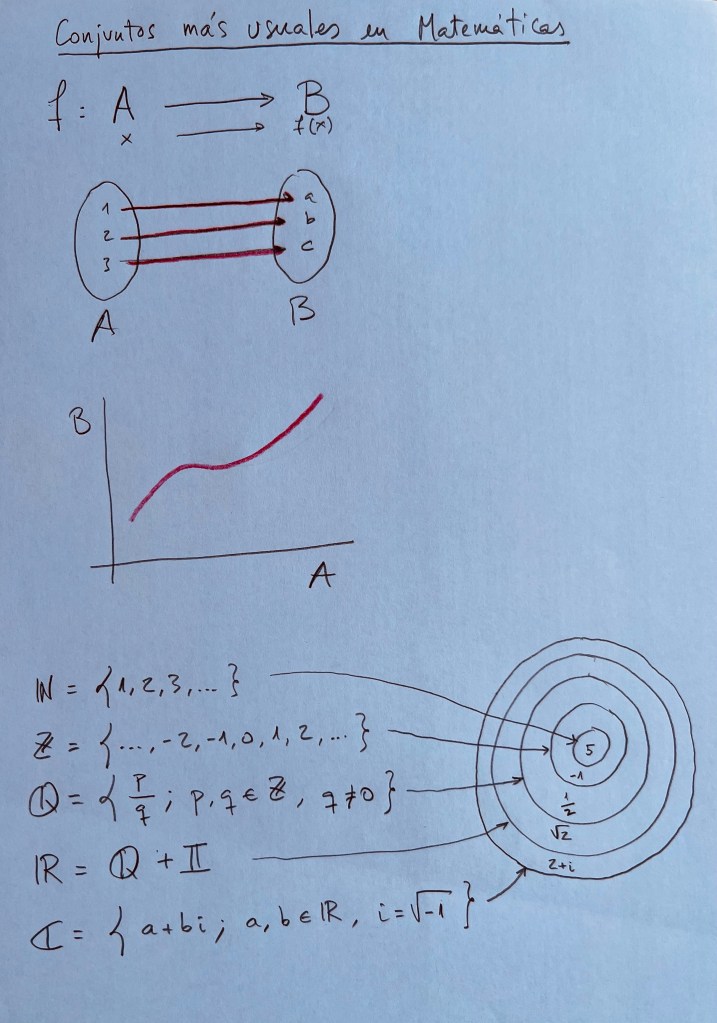 Conjuntos más usuales en Matemáticas
f : A ⟶ B
x ⟶ f(x)
1 a
2 b
3 c
A B
B
A
ℕ = {1, 2, 3, ...}
ℤ = {..., -2, -1, 0, 1, 2, ...}
ℚ = {p/q ; p, q ∈ ℤ, q ≠ 0}
ℝ = ℚ + 𝕀
ℂ = {a + bi ; a, b ∈ ℝ, i = √-1}
5
-1
1/2
√2
2+i